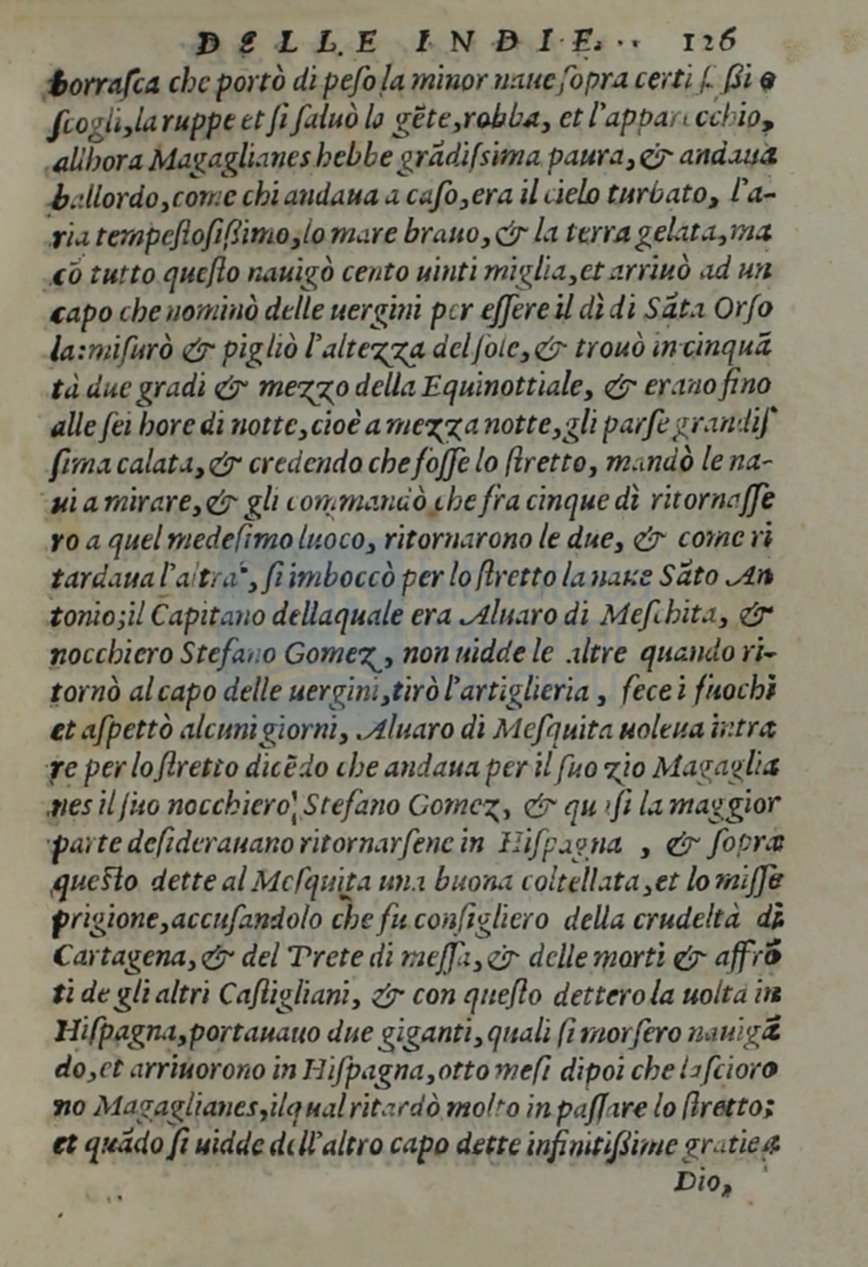 DELLE INDIE. 126
borraſca che portò di peſo la minor naue ſopra certi ſaßi o
ſcogli, la ruppe et ſi ſaluò la gẽte, robba, et l'apparecchio,
allhora Magaglianes hebbe grãdiſsima paura, & andaua
ballordo, come chi andaua a caſo, era il cielo turbato, l'a-
ria tempeſtoſißimo, lo mare brauo, & la terra gelata, ma
cõ tutto queſto nauigò cento uinti miglia, et arriuò ad un
capo che nominò delle uergini per eſſere il dì di Sãta Orſo
la: miſurò & pigliò l'altezza del ſole, & trouò in cinquã
tà due gradi & mezzo della Equinottiale, & erano fino
alle ſei hore di notte, cioè a mezza notte, gli parſe grandiſ
ſima calata, & credendo che foſſe lo ſtretto, mandò le na-
ui a mirare, & gli commandò che fra cinque dì ritornaſſe
ro a quel medeſimo luoco, ritornarono le due, & come ri
tardaua l'altra, ſi imboccò per lo ſtretto la naue Sãto An
tonio; il Capitano dellaquale era Aluaro di Meſchita, &
nocchiero Stefano Gomez, non uidde le altre quando ri-
tornò al capo delle uergini, tirò l'artiglieria, fece i fuochi
et aſpettò alcuni giorni, Aluaro di Meſquita uoleua intra
re per lo ſtretto dicẽdo che andaua per il ſuo zio Magaglia
nes il ſuo nocchiero Stefano Gomez, & quaſi la maggior
parte deſiderauano ritornarſene in Hiſpagna, & ſopra
queſto dette al Meſquita una buona coltellata, et lo miſſe
prigione, accuſandolo che fu conſigliero della crudeltà di
Cartagena, & del Prete di meſſa, & delle morti & affrõ
ti de gli altri Caſtigliani, & con queſto dettero la uolta in
Hiſpagna, portauauo due giganti, quali ſi morſero nauigã
do, et arriuorono in Hiſpagna, otto meſi dipoi che laſcioro
no Magaglianes, ilqual ritardò molto in paſſare lo ſtretto;
et quãdo ſi uidde dell'altro capo dette infinitißime gratie a
Dio,